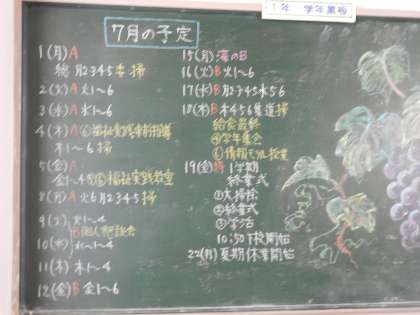 1年 学年黒板
7月の予定
1(月)A
総月2345委掃
2(火)A 火1〜6
3(水)A 水1〜6
4(木)A⑥福祉実践事前指導
木1〜6掃
5(金)A
金1〜4⑤⑥福祉実践教室
8(月)A 火6月2345掃
9(火)火1〜4
B個人懇談会
10(水)水1〜4
11(木)木1〜4
12(金)B 金1〜6
15(月)海の日
16(火)B 火1〜6
17(水)B 月2345水56
18(木)B 木456集道掃
給食最終
④学年集会
⑥情報モラル授業
19(金)特 1学期
終業式
①大掃除
②終業式
③学活
10:50下校開始
22(月)夏期休業開始